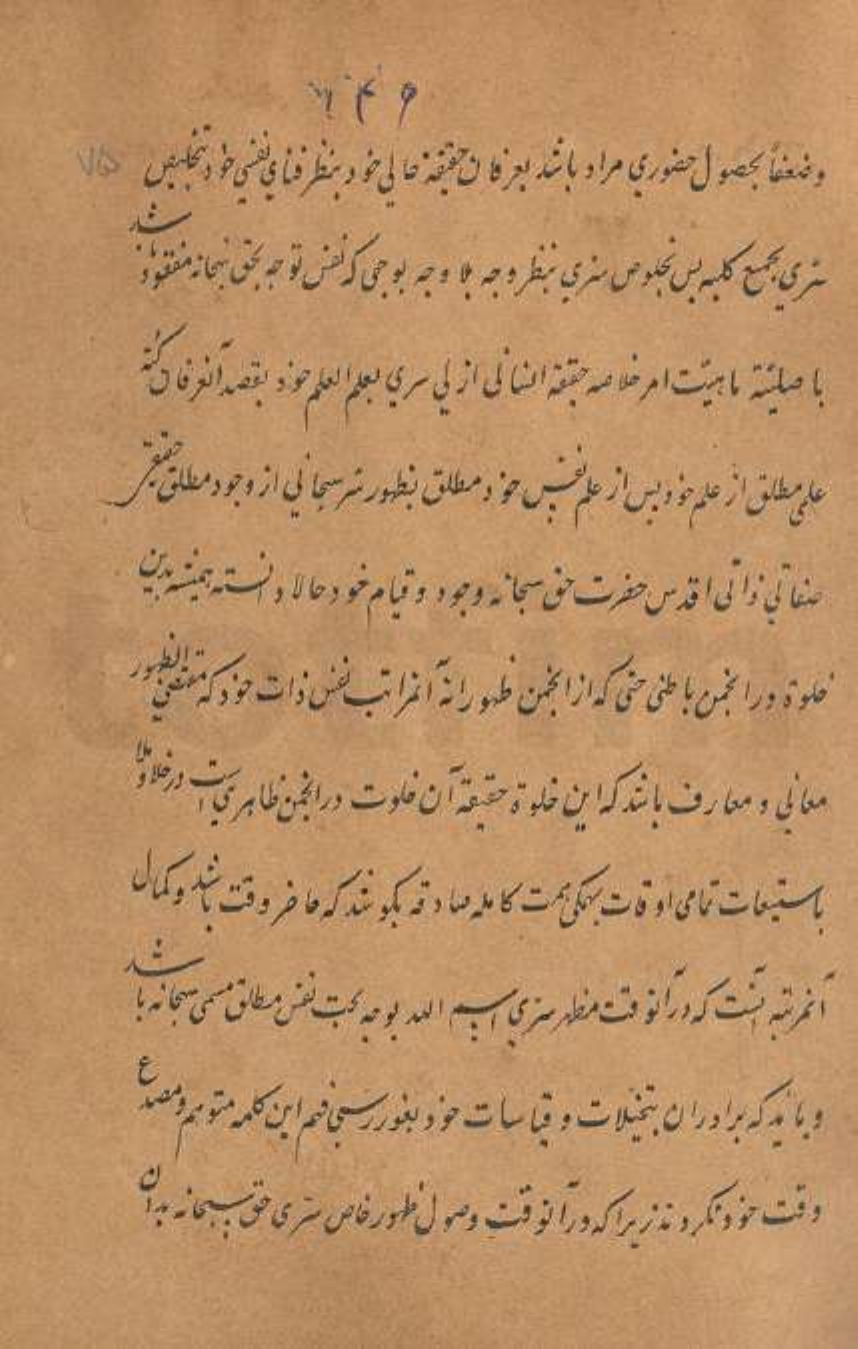 ۱۴۶
۷۵
وضعفاً بحصول حضوری مراد باشد بعرفان حقیقة حالی خود بنظر فنای نفسی خود بتخلیص
سری بجمیع کلیه پس بخلوص سری بنظر وجه بلا وجه بوجهی که نفس توجه بحق سبحانه مفقود باشد
با ماهیت امر خلاصه حقیقة انسانی ازلی سری بعلم العلم خود بقصد آنعرفان کنه
علمی مطلق از علم خود پس از علم نفس خود مطلق بظهور سر سبحانی از وجود مطلق حقیقی
صفاتی ذاتی اقدس حضرت حق سبحانه وجود و قیام خود حالا دانسته همیشه بدین
خلوة در انجمن باطنی حتی که از انجمن ظهورانه آنمراتب نفس ذات خود که مقتضی الظهور
معانی و معارف باشد که این خلوة حقیقة آن خلوت در انجمن ظاهری است در خلا و ملا
باستیعات تمامی اوقات بهمگی همت کامله صادقه بکوشد که حاضر وقت باشد و کمال
آنمرتبه آنست که در آنوقت مظهر سری اسم الله بوجه بحت نفس مطلق مسمی سبحانه باشد
و باید که برادران بتخیلات و قیاسات خود بغور رسمی فهم این کلمه متوهم و مصدع
وقت خود نکردند زیرا که در آنوقت وصول ظهور خاص سری حق سبحانه بدان